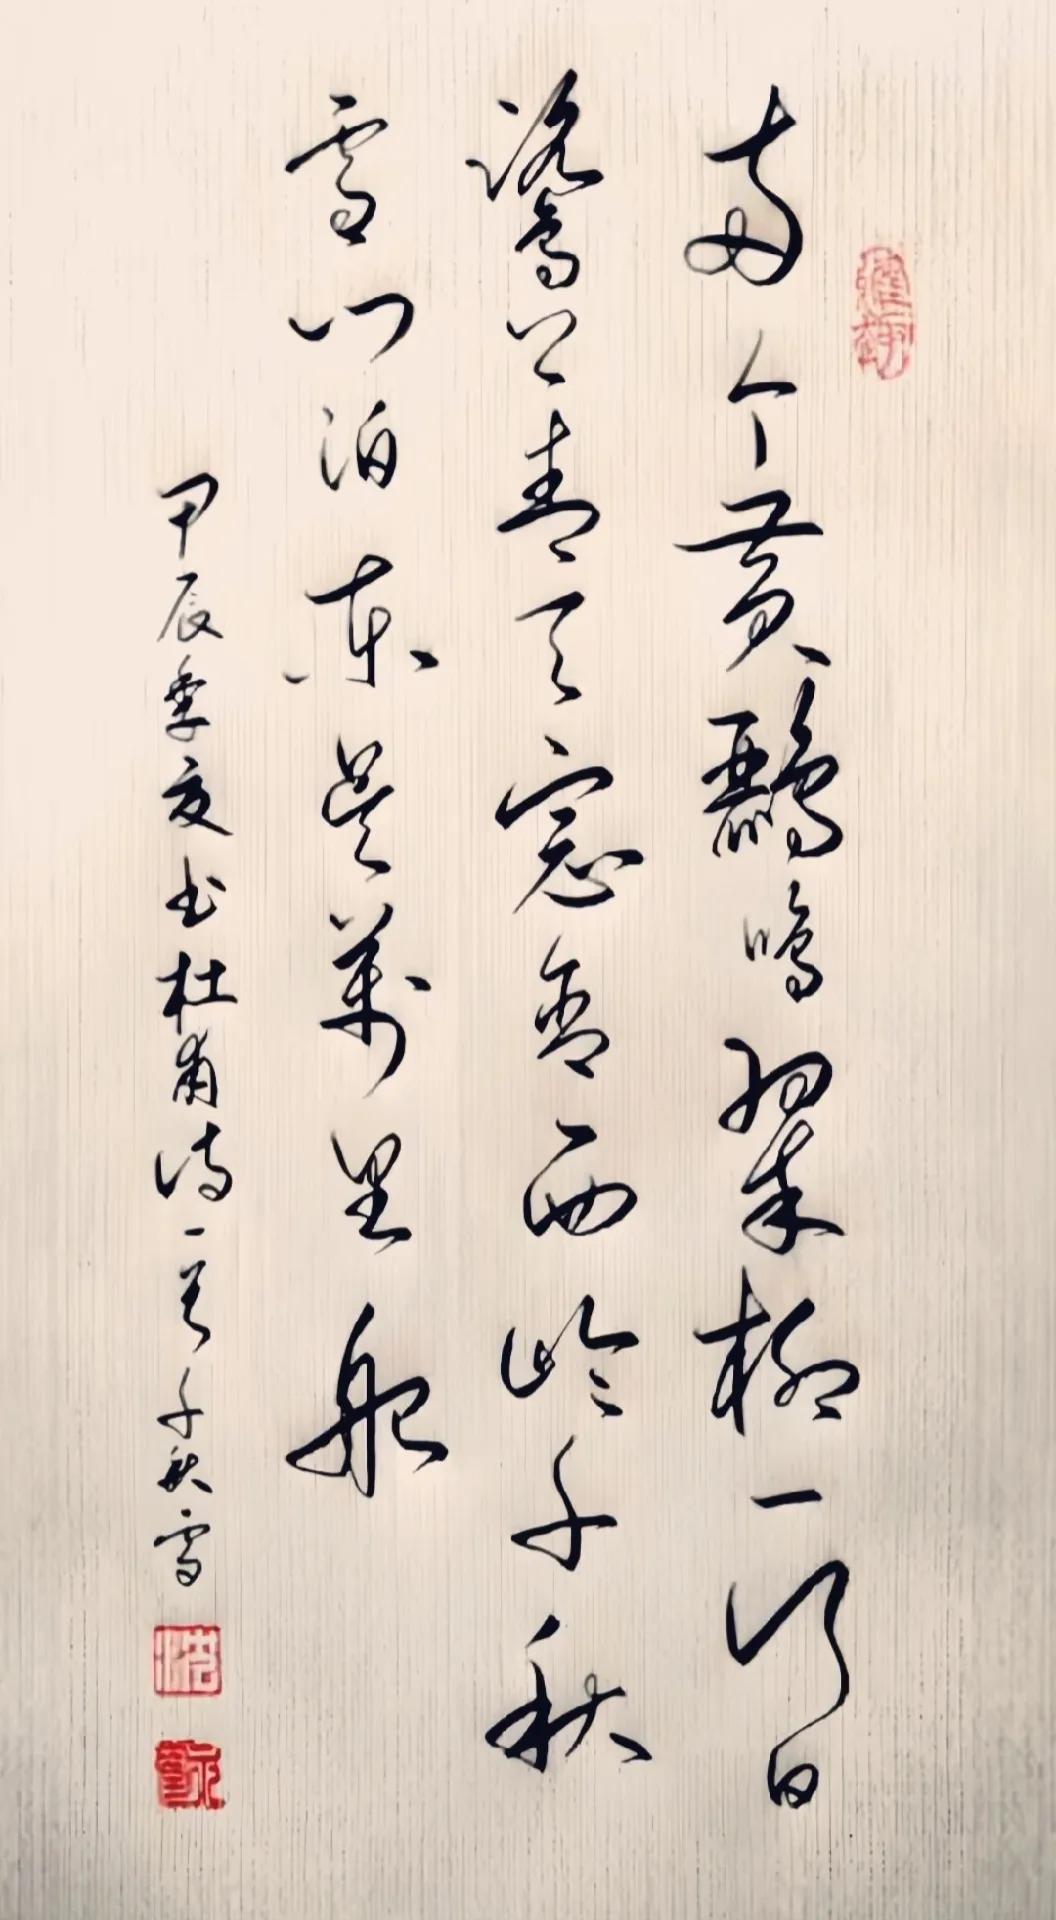 两个黄鸝鳴翠柳一行白
鷺上青天窓含西岭千秋
雪门泊東吴萬里船
甲辰季夏书杜甫诗一首千秋雪